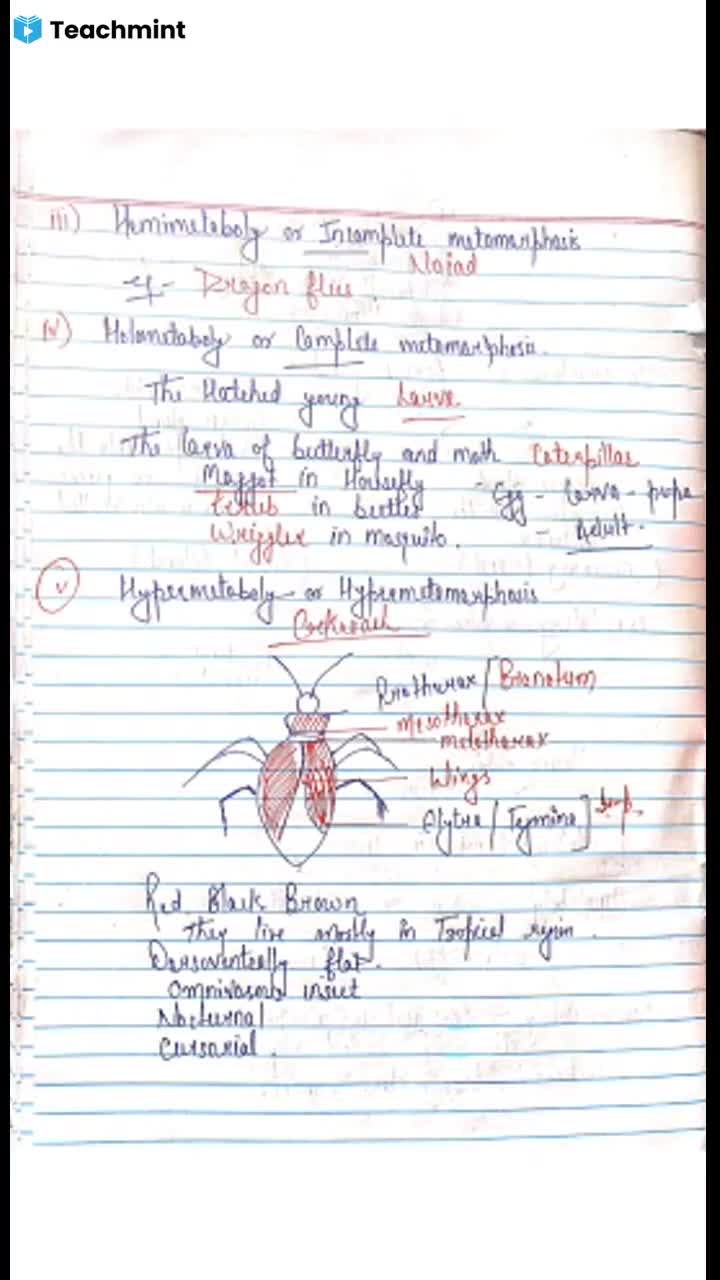 Teachmint
iii) Hemimetaboly or Incomplete metamorphosis
Naiad
eg- Dragon flies.
iv) Holometaboly or Complete metamorphosis.
The Hatched young Larva
The larva of butterfly and moth Caterpillar
Maggot in Housefly Egg - larva - pupa
in beetles - Adult.
Wriggler in mosquito.
v) Hypermetaboly - or Hypermetamorphosis
Cockroach
Prothorax / Pronotum
Mesothorax
metathorax
Wings
Elytra / Tegmina] Imp.
Red Black Brown
They live mostly in Tropical region.
Dorsoventrally flat.
Omnivorous insect
Nocturnal
Cursorial.